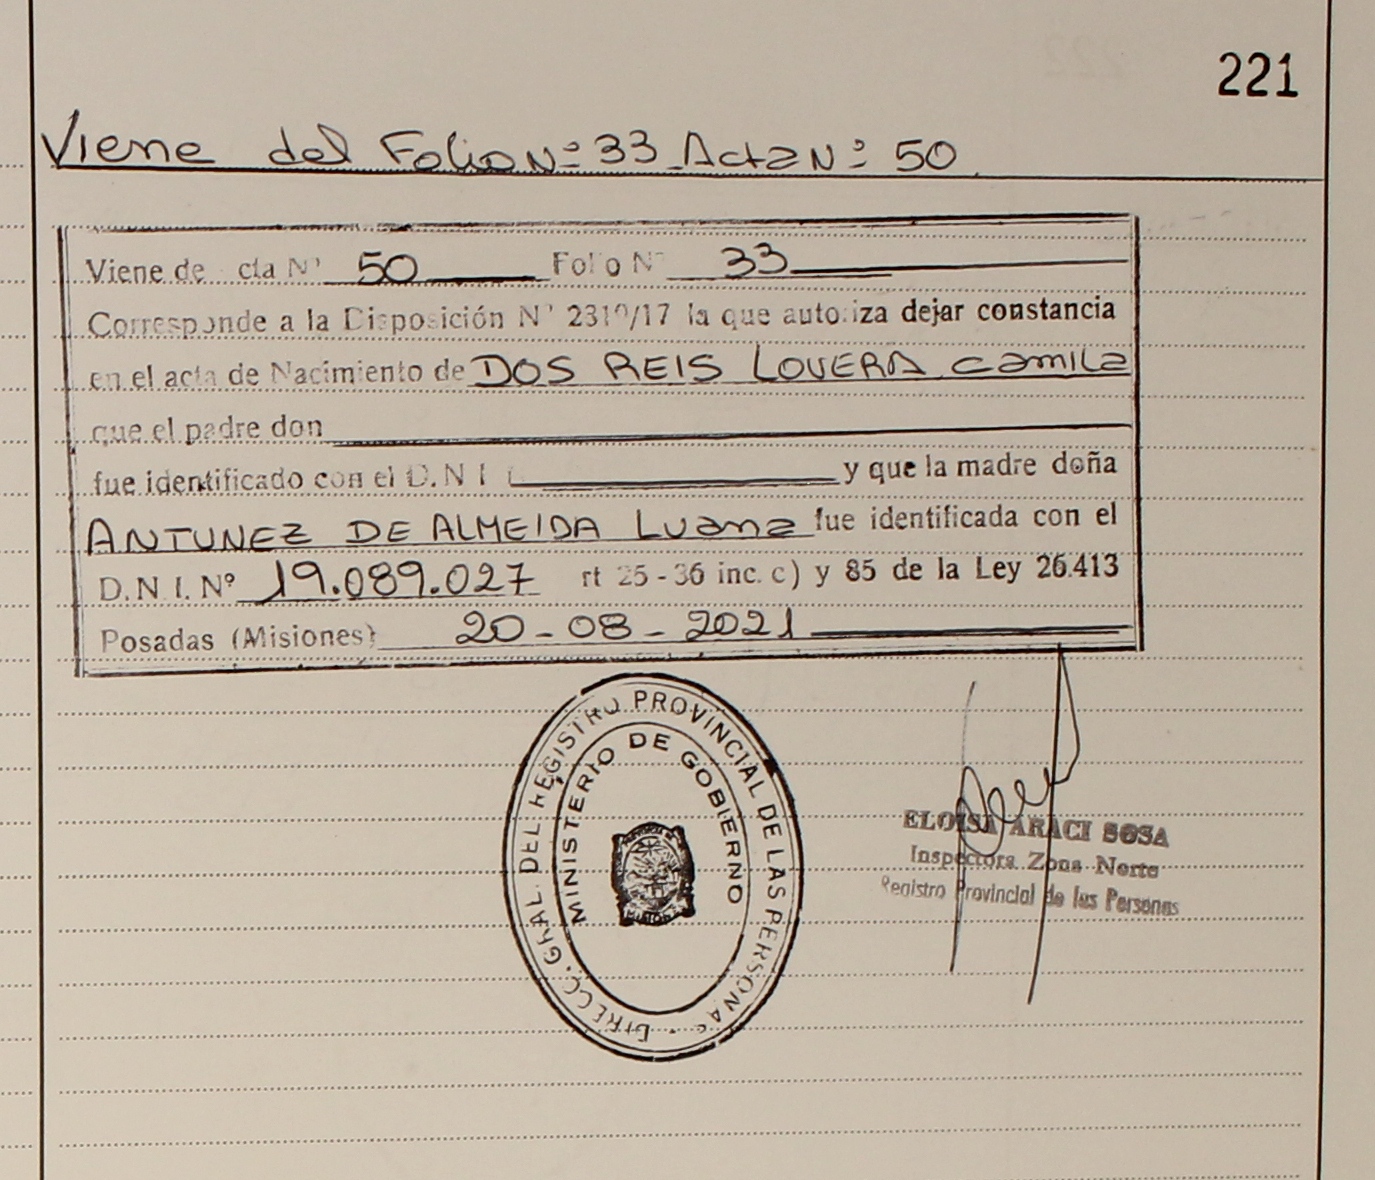 221
Viene del Folio Nº 33 Acta Nº 50
Viene de cta Nº 50 Folio Nº 33
Corresponde a la Disposición Nº 2310/17 la que autoriza dejar constancia
en el acta de Nacimiento de DOS REIS LOVERA Camila
que el padre don
fue identificado con el D.N.I. y que la madre doña
ANTUNEZ DE ALMEIDA Luana fue identificada con el
D.N.I. Nº 19.089.027 rt 25-36 inc. c) y 85 de la Ley 26.413
Posadas (Misiones) 20-08-2021
DIRECC. GRAL. DEL REGISTRO PROVINCIAL DE LAS PERSONAS
MINISTERIO DE GOBIERNO
ELOISA ARACI SOSA
Inspectora Zona Norte
Registro Provincial de las Personas